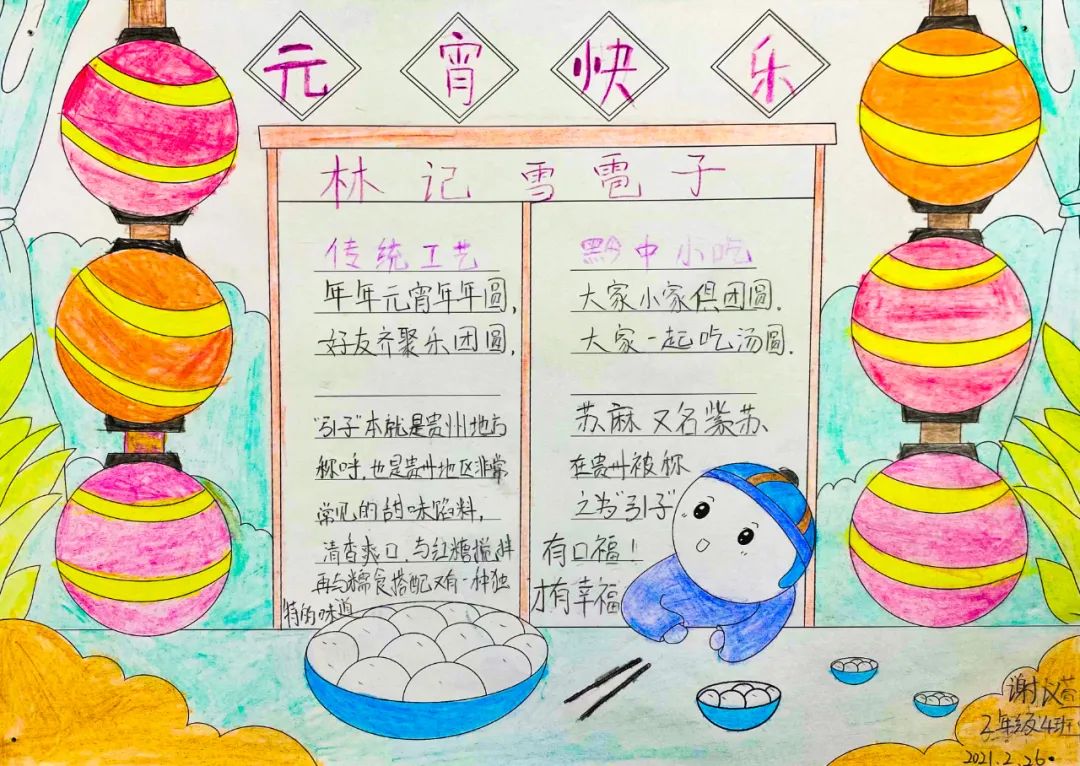 元宵快乐
林记雪雹子
传统工艺
年年元宵年年圆,
好友齐聚乐团圆,
"引子"本就是贵州地方
称呼,也是贵州地区非常
常见的甜味馅料,
清香爽口,与红糖搅拌
再与糯食搭配又有一种独
特的味道
黔中小吃
大家小家俱团圆.
大家一起吃汤圆.
苏麻又名紫苏、
在贵州被称
之为"引子"
有口福!
才有幸福
谢
年级4班
2021.2.26